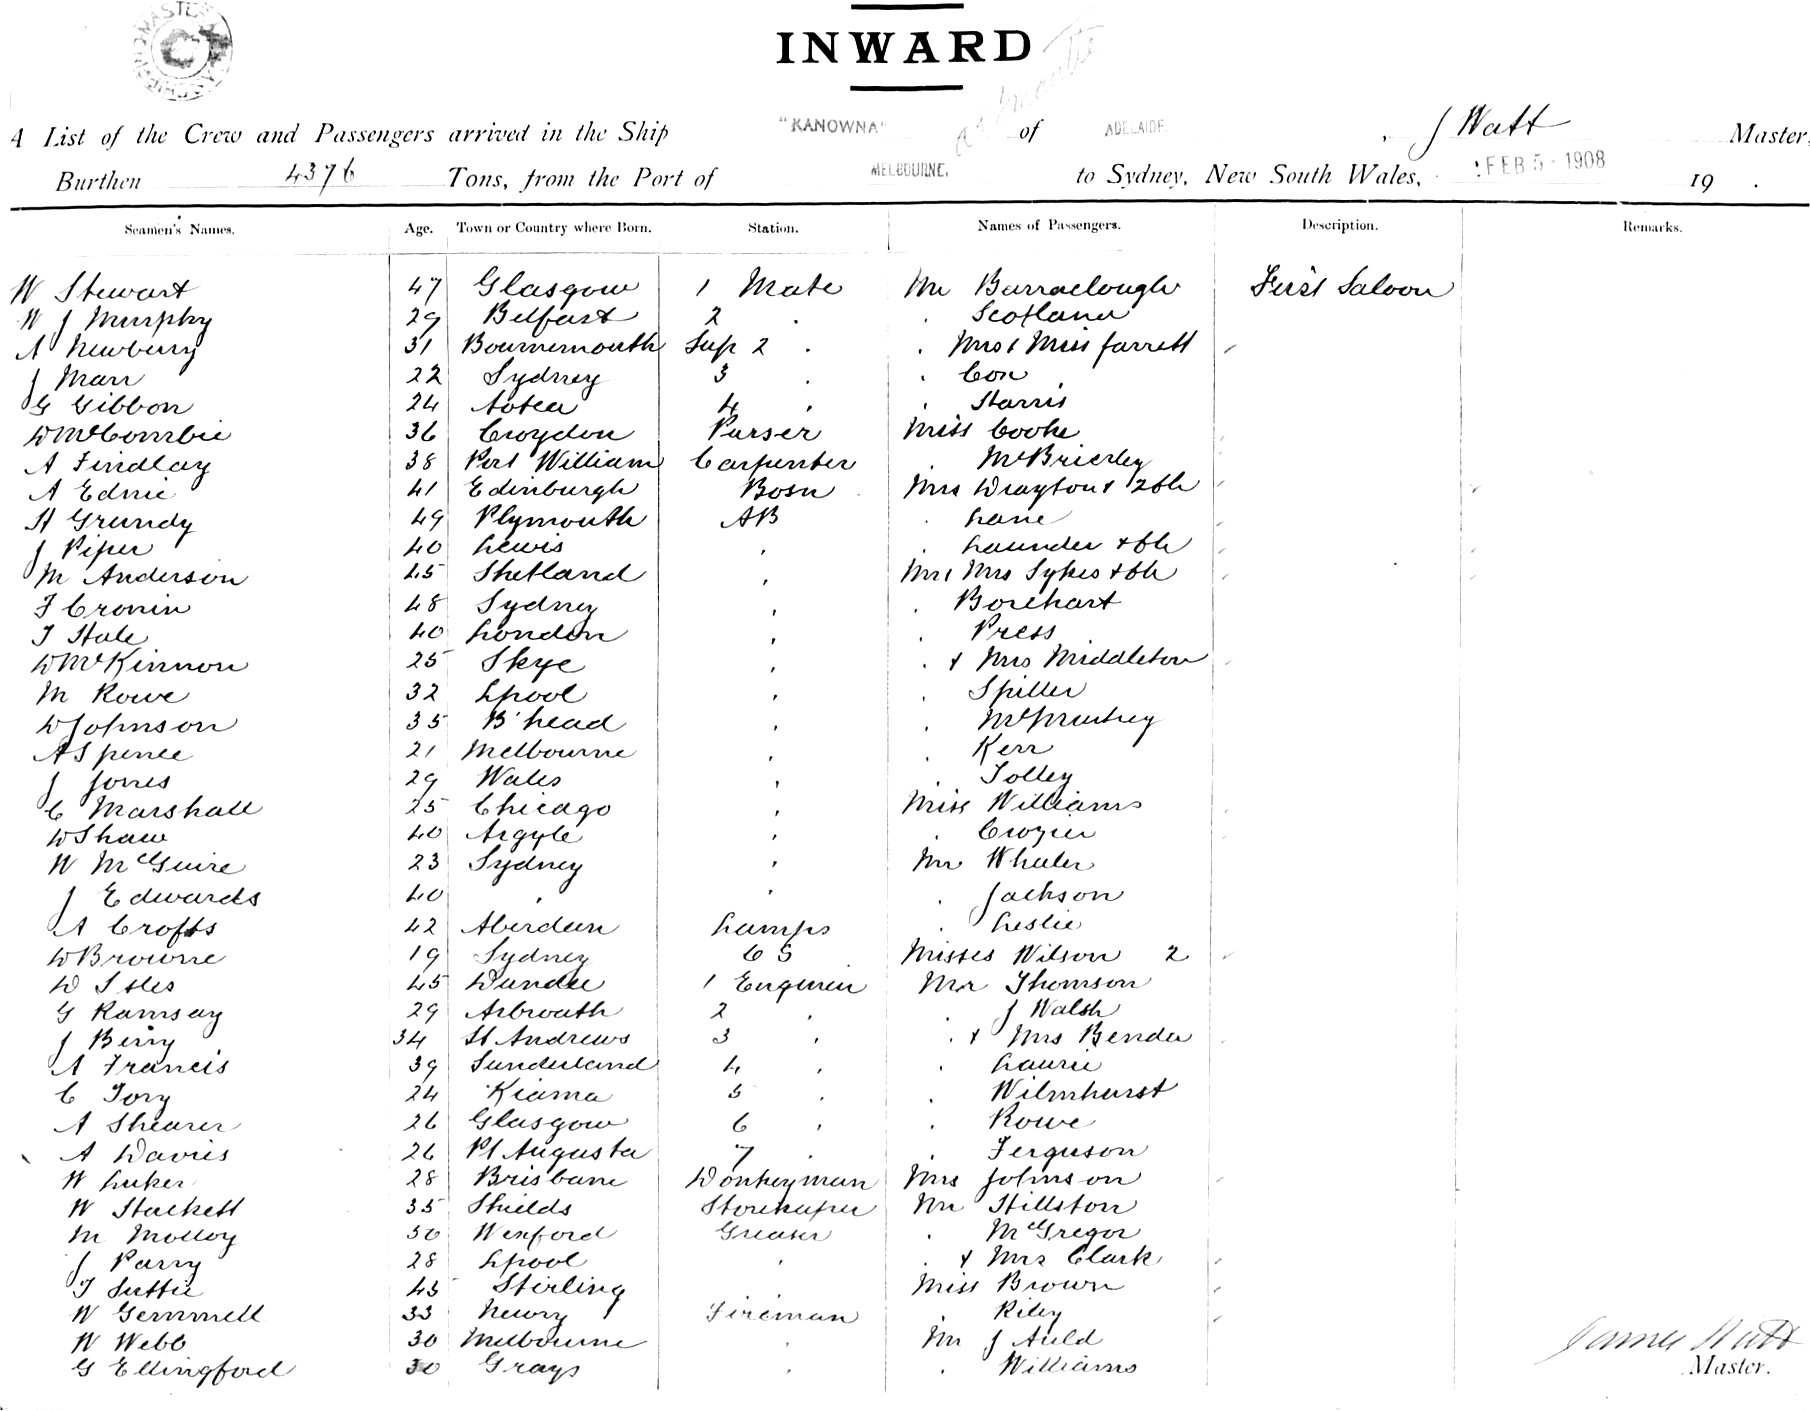 INWARD
A List of the Crew and Passengers arrived in the Ship "KANOWNA" of ADELAIDE, J Watt Master,
Burthen 4376 Tons, from the Port of MELBOURNE, to Sydney, New South Wales, FEB 5 - 1908 19 .
Seamen's Names. Age. Town or Country where Born. Station. Names of Passengers. Description. Remarks.
W Stewart 47 Glasgow 1 Mate Mr Barraclough First Saloon
W J Murphy 29 Belfast 2 . . Scotland
A Newberry 31 Bournemouth Sup 2 . . Mrs & Miss Jarrett
J Marr 22 Sydney 3 . . Con
G Gibbon 24 Aotea 4 . . Harris
D McCombie 36 Croydon Purser Miss Cooke
A Findlay 38 Port William Carpenter . McBrierley
A Ednie 41 Edinburgh Bosn Mrs Drayton & 2 Ch
H Grundy 49 Plymouth AB . Lane
J Piper 40 Lewis , . Launder & Ch
M Anderson 45 Shetland , Mr & Mrs Sykes & Ch
F Cronin 48 Sydney , . Borchart
T Hale 40 London , . Press
D McKinnon 25 Skye , . & Mrs Middleton
M Rowe 32 Lpool , . Spiller
W Johnson 35 B'head ,
A Spence 21 Melbourne , . Kerr
J Jones 29 Wales , . Tolley
C Marshall 25 Chicago , Miss Williams
W Shaw 40 Argyle , . Crozier
W McGuire 23 Sydney , Mr Wheeler
J Edwards 40 , , . Jackson
A Crofts 42 Aberdeen Lamps . Leslie
W Browne 19 Sydney C S Misses Wilson 2
D Isles 45 Dundee 1 Engineer Mr Thomson
G Ramsay 29 Arbroath 2 . . J Walsh
J Berry 34 St Andrews 3 . . & Mrs Bender
A Francis 39 Sunderland 4 . . Laurie
C Tory 24 Kiama 5 . . Wilmhurst
A Shearer 26 Glasgow 6 . . Rowe
A Davies 26 Pt Augusta 7 . . Ferguson
W Luker 28 Brisbane Donkeyman Mrs Johnson
W Hackett 35 Shields Storekeeper Mr Hillston
M Molloy 50 Wexford Greaser . McGregor
J Parry 28 Lpool . . & Mrs Clark
T Suttie 45 Stirling Miss Brown
W Gemmell 33 Newry Fireman . Riley
W Webb 30 Melbourne . Mr J Auld
G Ellingford 30 Grays . . Williams
James Watt
Master.